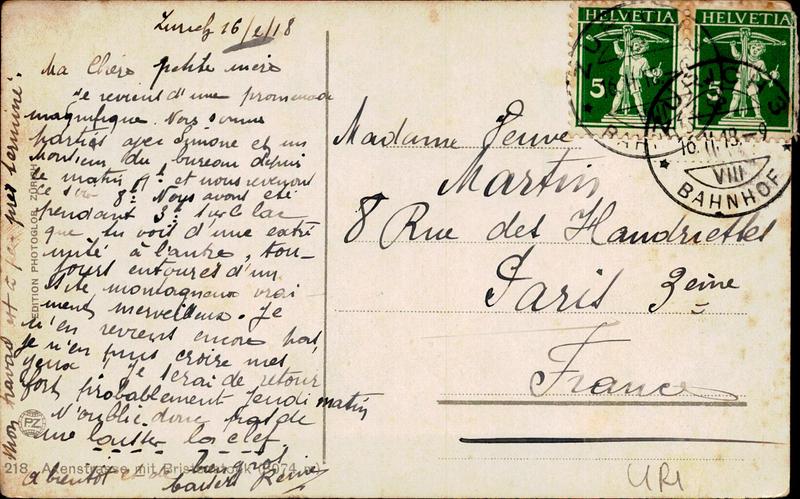 Zurich 16/2/18
Ma Chère petite mère
Je reviens d'une promenade
magnifique. Nous sommes
parties avec Simone et un
Monsieur du bureau depuis
le matin et nous revenons
ce soir 8h. Nous avons été
pendant 3h sur le lac
que tu vois d'une extré
mité à l'autre, tou-
jours entourés d'un
site montagneux vrai-
ment merveilleux. Je
n'en reviens encore pas,
je n'en puis croire mes
yeux. Je serai de retour
fort probablement jeudi matin
N'oublie donc pas de
me laisser la clef.
A bientôt bien gros
baisers Reine
Mon travail est à peu près terminé.
EDITION PHOTOGLOB, ZÜRICH
PZ
218. Axenstrasse mit Bristenstock (3074 m)
HELVETIA
5
HELVETIA
5
ZÜRICH
16.II.18.-9
VIII
BAHNHOF
Madame Veuve
Martin
8 Rue des Haudriettes
Paris 3eme
France
URI